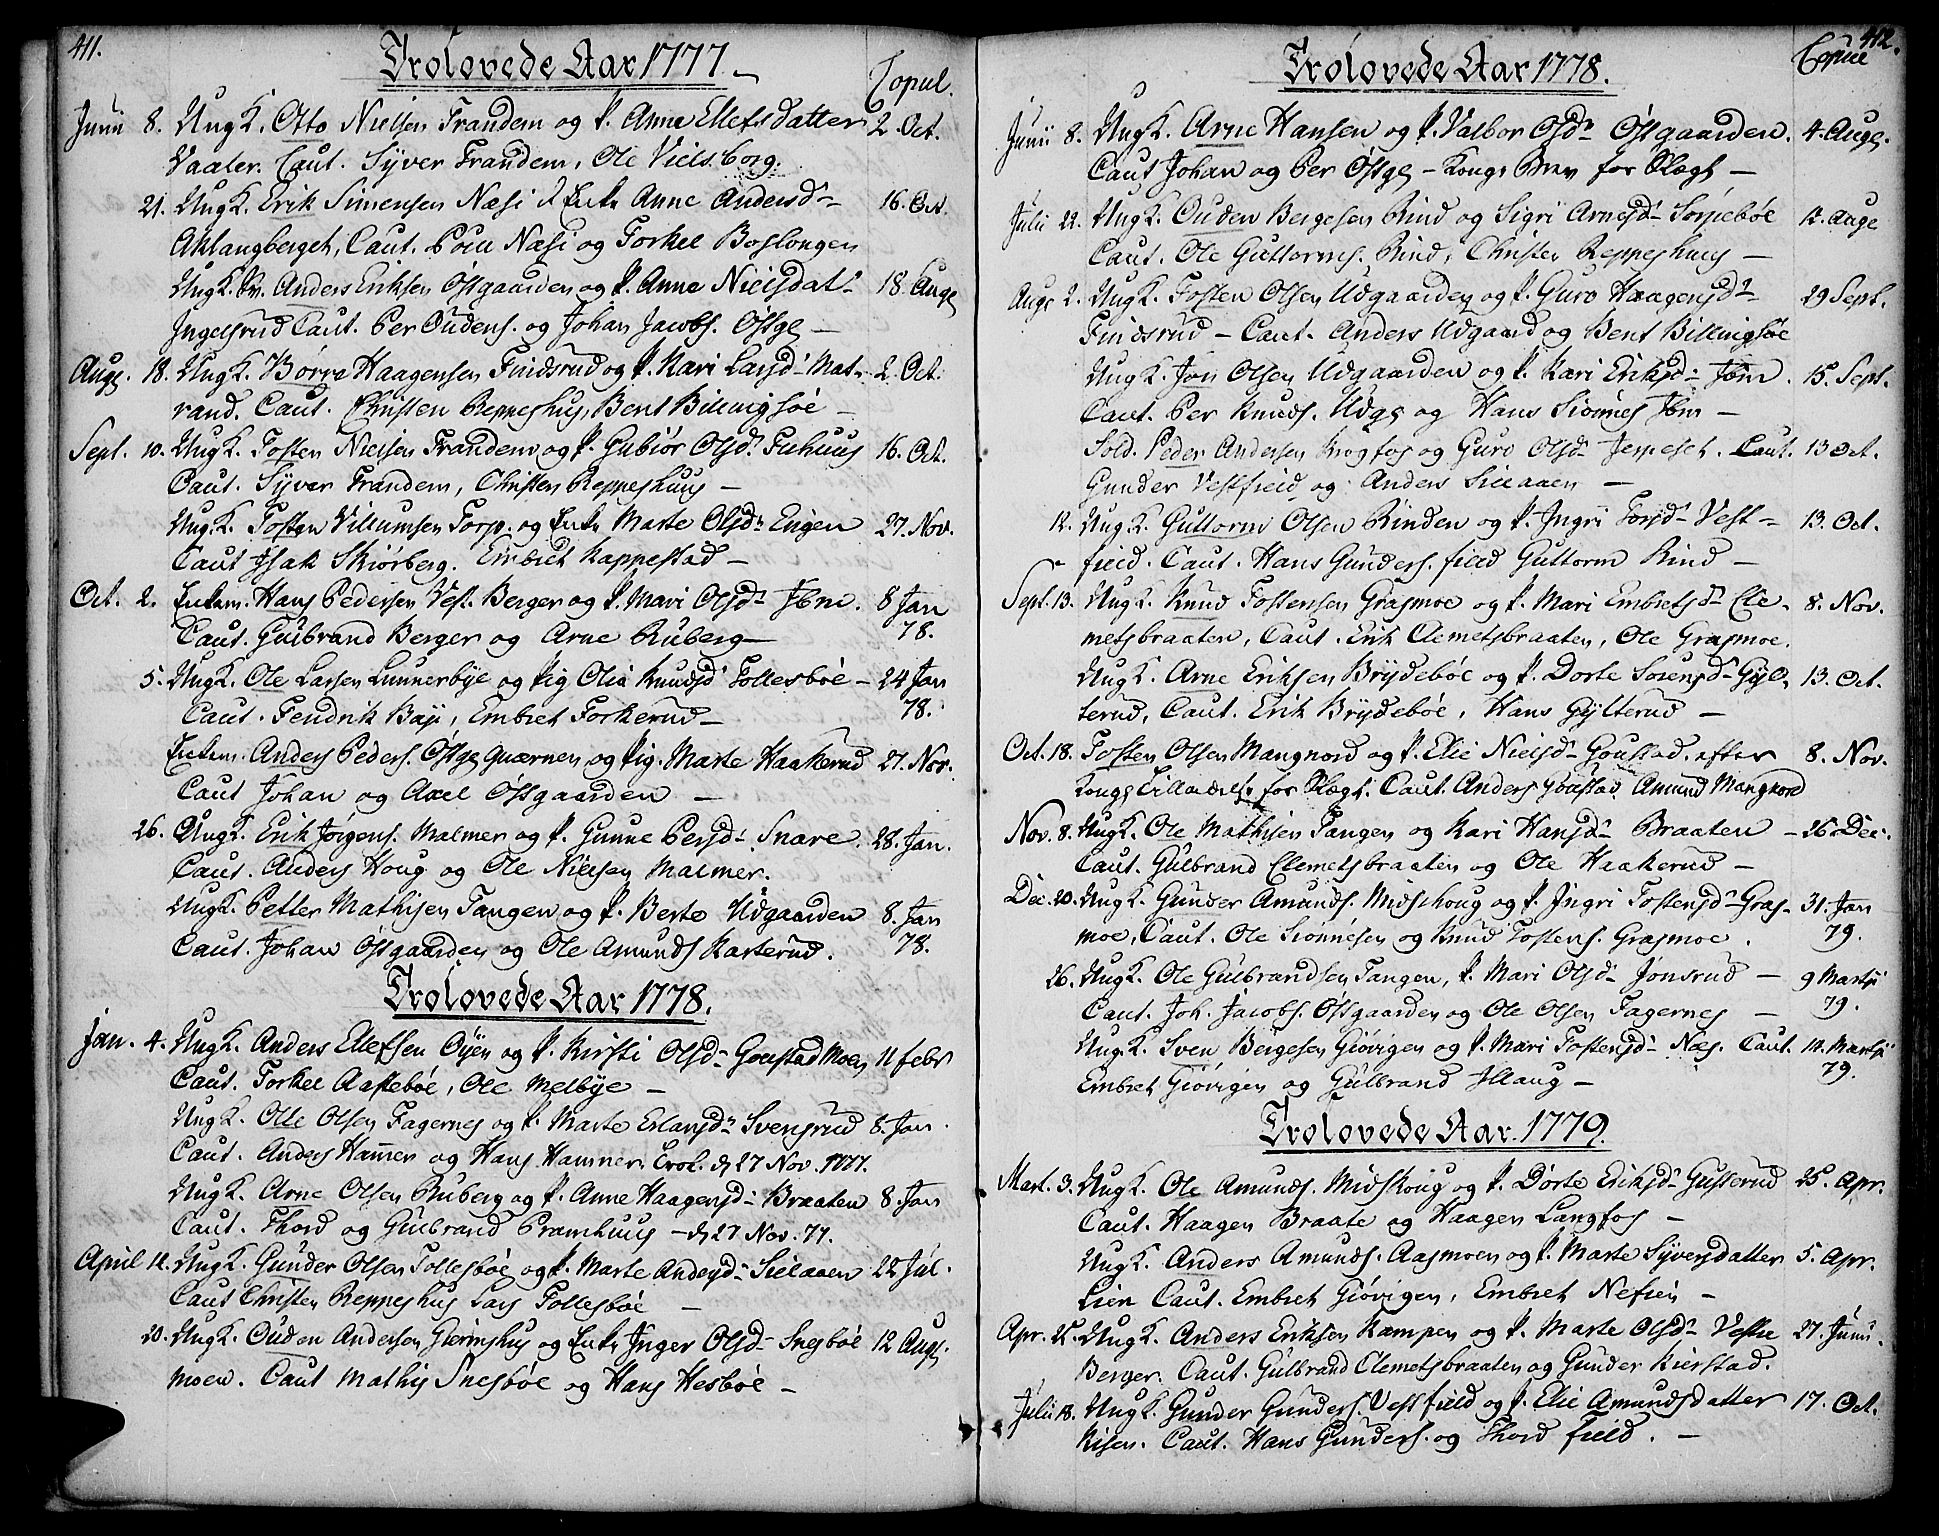 411.
Trolovede Aar 1777. Copul.
Junii 8. UngK. Otto Nielsen Trandem og P. Anne Ellefsdatter 2. Oct.
Vaaler. Caut. Syver Trandem, Ole Vielsborg.
21. UngK. Erik Simensen Næsi & Enke Anne Andersd 16. Oct.
Aklangberget, Caut. Poul Næsi og Torkel Boslongen
UngK. Anders Eriksen Østgaarden og P. Anne Nielsdat 18. Augs
Ingelsrud Caut. Per Oudens. og Johan Jacobs. Østg
Augs. 18. UngK. Børre Haagensen Findsrud og P. Kari Larsd Mat- 2. Oct.
rand. Caut. Christen Reppeshus, Bent Billingsøe
Sept. 10. UngK. Tosten Nielsen Trandem og P. Gubiør Olsd. Fuhuus 16. Oct.
Caut. Syver Trandem, Christen Reppeshuus
UngK. Tosten Villumsen Torp. og Enke Marte Olsd Engen 27. Nov.
Caut Isak Skiørberg. Embret Kappestad
Oct. 2. Enkem. Hans Pedersen Vest. Berger og P. Mari Olsd Ibm. 8 Jan
Caut. Gulbrand Berger og Arne Ruberg 78.
5. UngK. Ole Larsen Lunnerbye og Pig Olia Knudsd Tollesbøe 24 Jan
Caut. Fendrik Bay, Embret Torkerud 78.
Enkem. Anders Peders. Østgs qværnen og Pig. Marte Haakerud 27. Nov.
Caut Johan og Axel Østgaarden
26. UngK. Erik Jørgens. Malmer og P. Gunne Persd Snare. 28. Jan.
Caut. Anders Houg og Ole Nielsen Malmer.
UngK. Petter Mathisen Tangen og P. Berte Udgaarden 8. Jan
Caut. Johan Østgaarden og Ole Amunds Kasterud. 78.
Trolovede Aar 1778.
Jan. 4. UngK. Anders Ellefsen Oyen og P. Kirsti Olsd Goustad Moen 11 febr
Caut. Torkel Aastebøe, Ole Melbye
UngK. Olle Olsen Fagernes og P. Marte Erlansd Svensrud 8. Jan.
Caut. Anders Hammer og Hans Hammer Trol. d 27 Nov. 1777.
UngK. Arne Olsen Ruberg og P. Anne Haagensd Braaten 8. Jan
Caut. Thord og Gulbrand Pramhuus d 27 Nov. 77.
April 12. UngK. Gunder Olsen Tollesbøe og P. Marte Andersd Sielaaen 22 Jul.
Caut Christen Reppeshus Lars Tollesbøe
20. UngK. Ouden Andersen Gierinshus og Enke Inger Olsd Snesbøe 12 Augs.
moen. Caut Mathis Snesbøe og Hans Hesbøe
412.
Trolovede Aar 1778. Copul
Junii 8. UngK. Arne Hansen og P. Valbor Olsd Østgaarden. 4. Augs.
Caut Johan og Per Østgs Kongs Brev for Slegt
Julii 22. UngK. Ouden Bergesen Rind og Sigri Arnesd Sorpebøe 12. Augs
Caut. Ole Guttorms. Rind, Christen Reppeshuus
Augs 2. UngK. Tosten Olsen Udgaarden og P. Guro Haagensd 29 Sept.
Findsrud Caut. Anders Udgaard og Bent Billingsøe
UngK. Jon Olsen Udgaarden og P. Kari Eriksd Ibm. 15. Sept.
Caut. Per Knuds. Udgs og Hans Siønnes Ibm
Sold. Peder Andersen Krogfos og Guro Olsd Jerpeset. Caut. 13 Oct.
Gunder Vestfield og Anders Sielaaen
12. UngK. Guttorm Olsen Rinden og P. Ingri Torsd Vest- 13. Oct.
field. Caut. Hans Gunders. field Guttorm Rind
Sept. 13. UngK. Knud Tostensen Grasmoe og P. Mari Embretsd Cle- 8. Nov.
metsbraaten, Caut. Erik Clemetsbraaten, Ole Grasmoe.
UngK. Arne Eriksen Brydebøe og P. Dorte Sorensd Gyl- 13. Oct.
terud, Caut. Erik Brydebøe, Hans Gylterud
Oct. 18. Tosten Olsen Mangnord og P. Elie Nielsd Goustad. efter 8. Nov.
Kongs Tilladelse for Slegt. Caut. Anders Goustad Amund Mangnord
Nov. 8. UngK. Ole Mathisen Tangen og Kari Hansd Braaten 26. Dec.
Caut. Gulbrand Clemetsbraaten og Ole Haakerud
Dec. 20. UngK. Gunder Amunds. Midskoug og P. Ingri Tostensd Gras- 31. Jan
moe, Caut. Ole Siønnesen og Knud Tostens. Grasmoe. 79.
26. UngK. Ole Gulbrandsen Tangen, P. Mari Olsd Jonsrud 9 Martii
Caut. Joh. Jacobs. Østgaarden og Ole Olsen Fagernes 79.
UngK. Sven Bergesen Giøvigen og P. Mari Tostensd Næs. Caut. 14. Martii
Embret Giøvigen og Gulbrand Illaug 79.
Trolovede Aar. 1779.
Mart. 3. UngK. Ole Amunds. Midskoug og P. Dorte Eriksd Gusterud 25. Apr.
Caut. Haagen Braate og Haagen Langfos
UngK. Anders Amunds. Aasmoen og P. Marte Syversdatter 5. Apr.
Lien Caut. Embret Giøvigen, Embret Nefien
Apr. 25. UngK. Anders Eriksen Kampen og P. Marte Olsd Vestre 27. Junii.
Berger. Caut. Gulbrand Clemetsbraaten og Gunder Kierstad.
Julii 18. UngK. Gunder Gunders. Vestfield og P. Elie Amundsdatter 17. Oct.
Risen. Caut. Hans Gunders. og Thord Field.